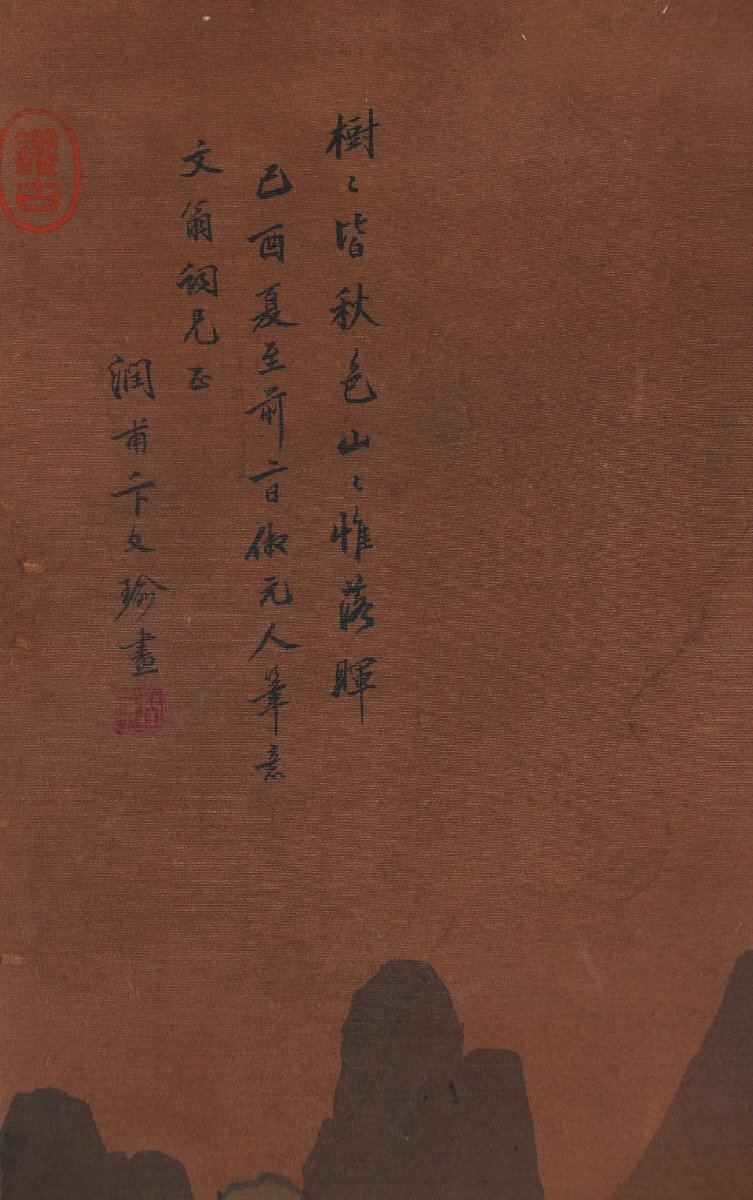 樹〻皆秋色山〻惟落暉
己酉夏至前二日倣元人筆意
文翁詞兄正
潤甫卞文瑜畫